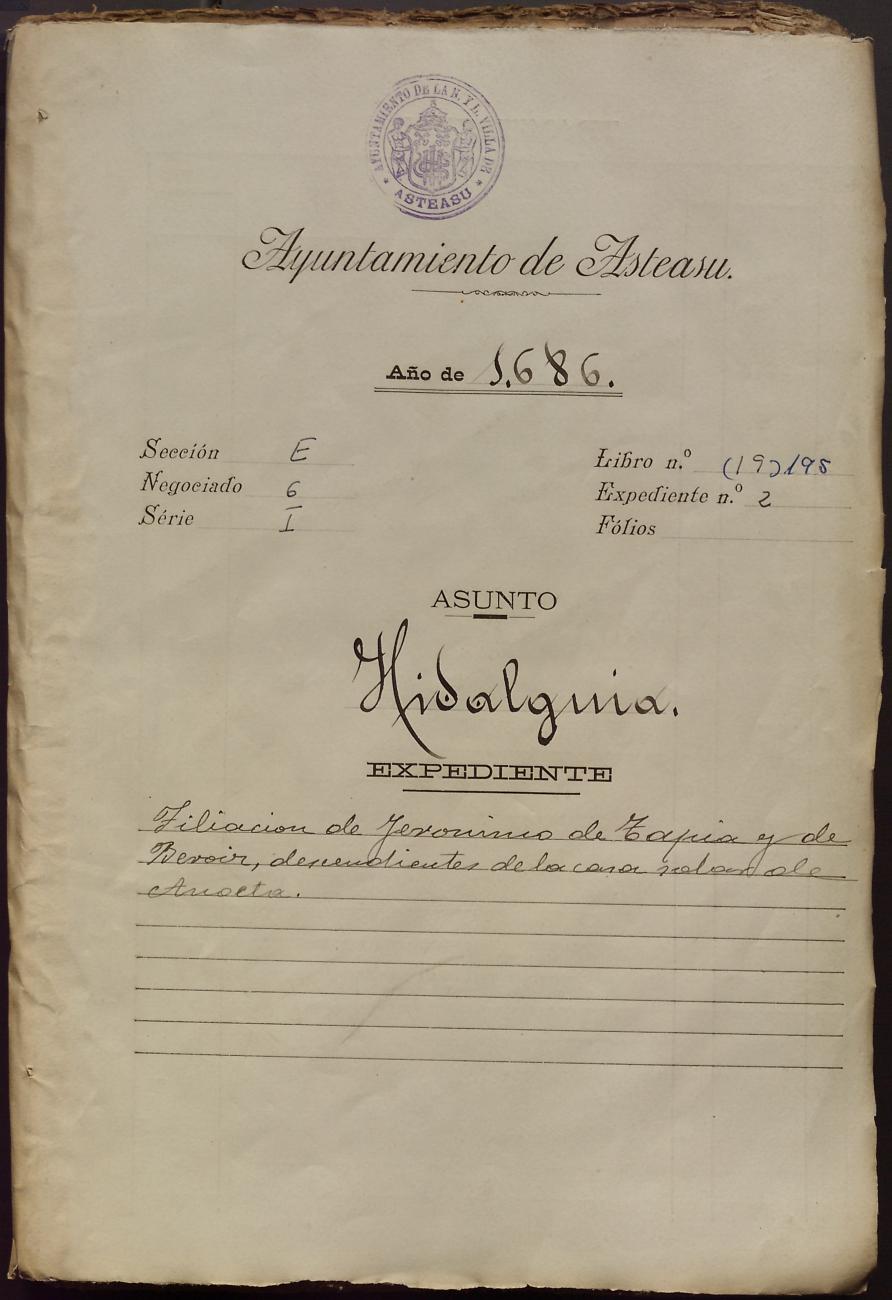 AYUNTAMIENTO DE LA N. Y L. VILLA DE
* ASTEASU *
Ayuntamiento de Asteasu.
Año de 1.686.
Sección E
Negociado 6
Série I
Libro n.º (19) 195
Expediente n.º 2
Fólios
ASUNTO
Hidalguia.
EXPEDIENTE
Filiacion de Jeronimo de Tapia y de
Beroiz, descendientes de la casa solar de
Anoeta.